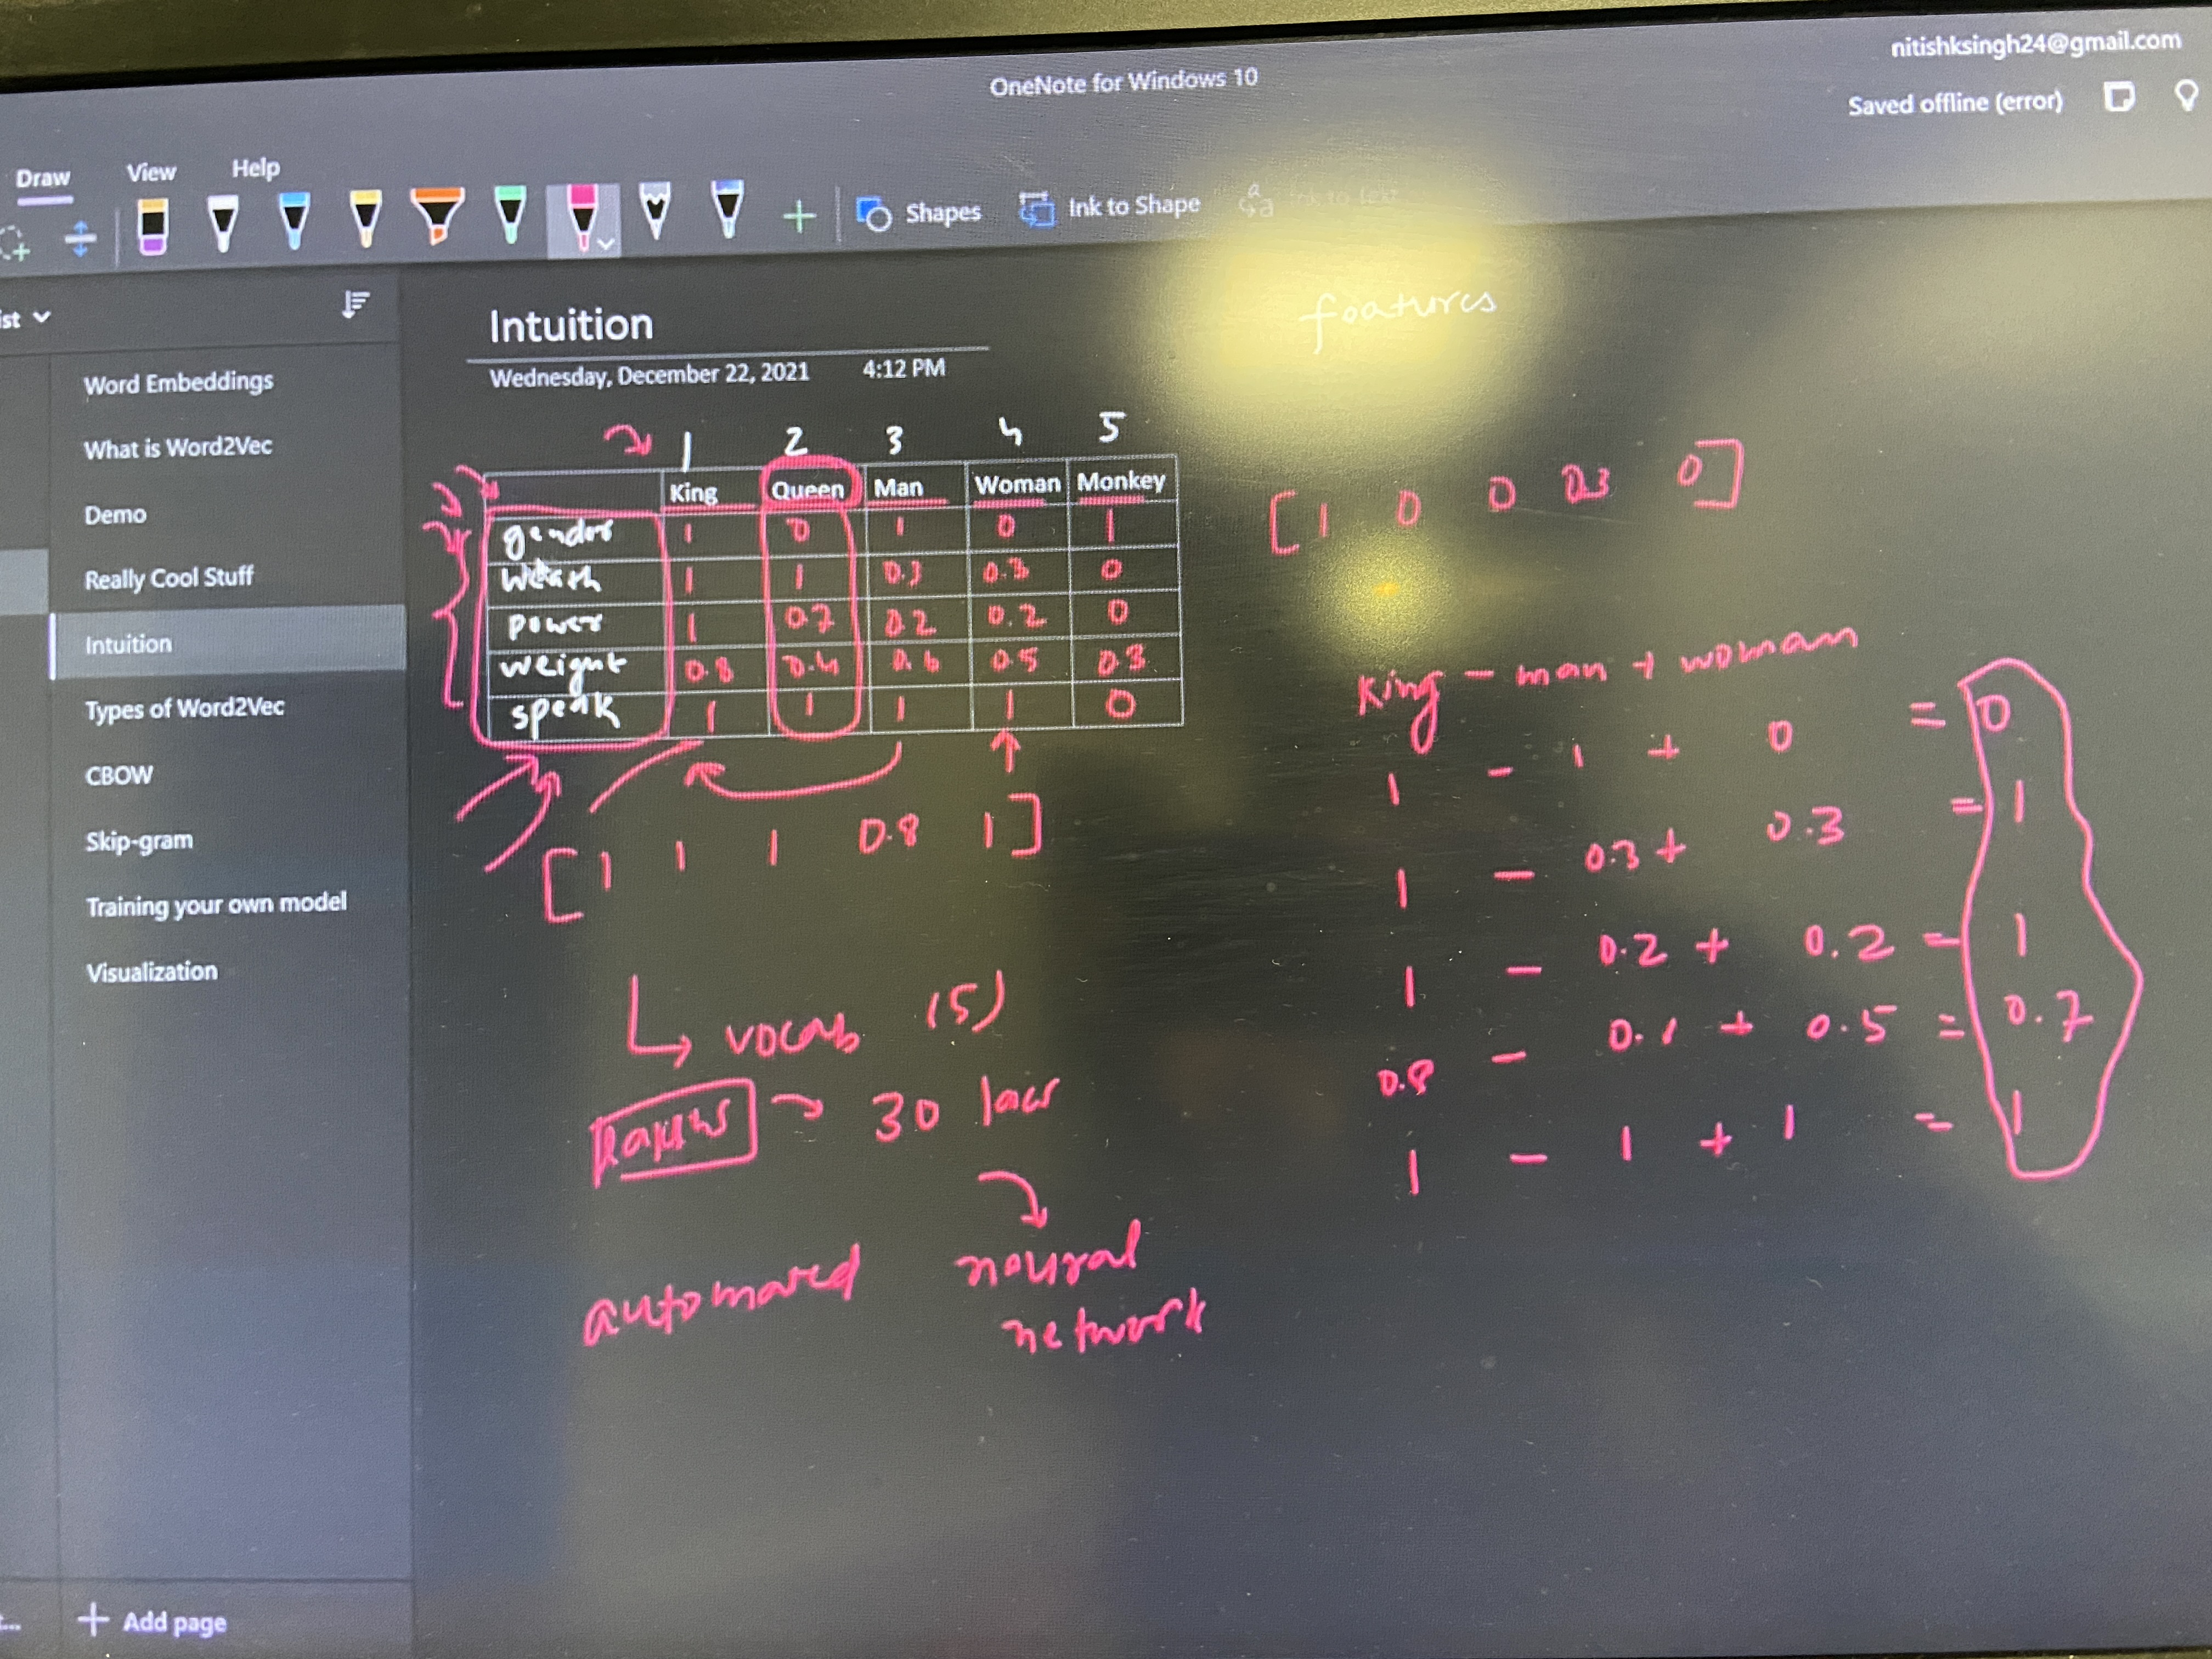 nitishksingh24@gmail.com
OneNote for Windows 10
Saved offline (error)
Draw View Help
Shapes Ink to Shape
ist
Word Embeddings
What is Word2Vec
Demo
Really Cool Stuff
Intuition
Types of Word2Vec
CBOW
Skip-gram
Training your own model
Visualization
Add page
Intuition
Wednesday, December 22, 2021 4:12 PM
features
1 2 3 4 5
King Queen Man Woman Monkey
gender 1 0 1 0 1
1 1 0.3 0.3 0
power 1 0.7 0.2 0.2 0
weight 0.8 0.4 0.6 0.5 0.3
speak 1 1 1 1 0
[1 1 1 0.8 1]
vocab (5)
30 lacs
automated neural
network
[1 0 0 0.3 0]
King - man + woman
1 - 1 + 0 = 0
1 - 0.3 + 0.3 = 1
1 - 0.2 + 0.2 = 1
0.8 - 0.1 + 0.5 = 0.7
1 - 1 + 1 = 1